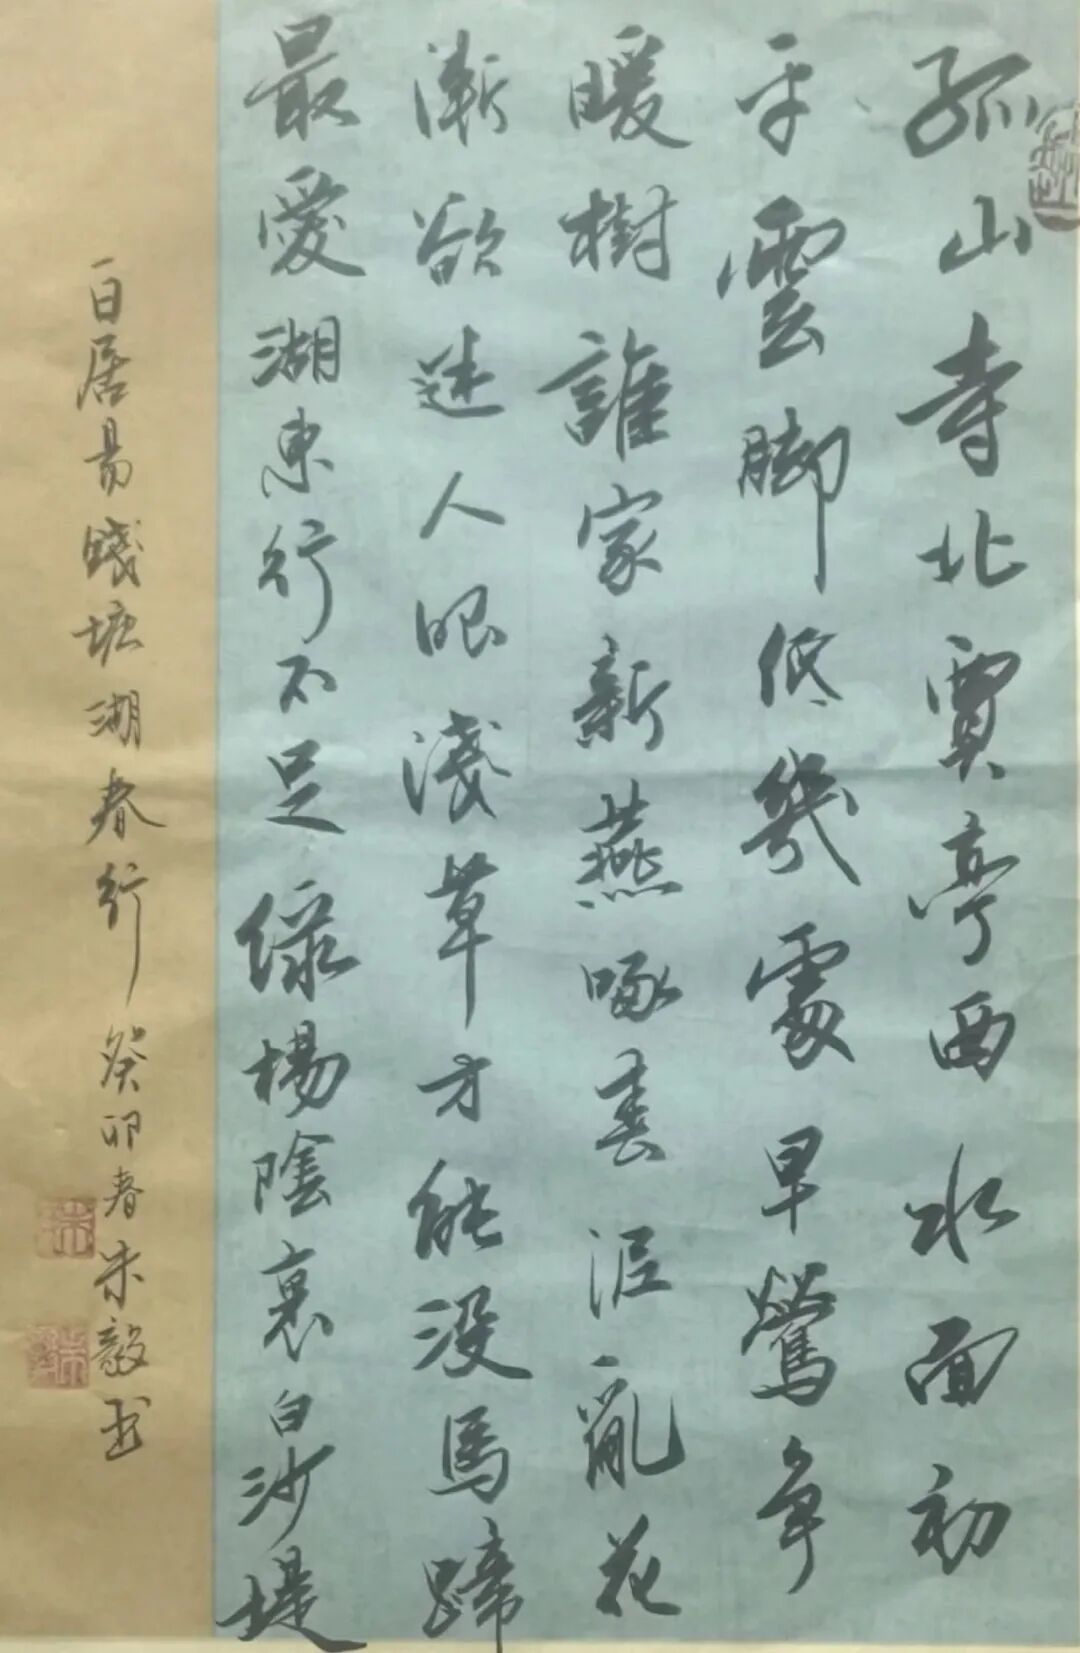 孤山寺北賈亭西水面初
平雲脚低幾處早鶯争
暖樹誰家新燕啄春泥亂花
漸欲迷人眼淺草才能没馬蹄
最愛湖東行不足緑楊陰裏白沙堤
白居易錢塘湖春行癸卯春朱毅书